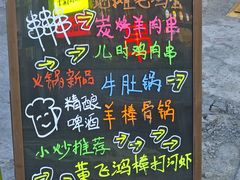 炭烤羊肉串
儿时鸡肉串
火锅新品 牛肚锅
精酿啤酒 羊棒骨锅
小炒推荐
黄飞鸿棒打河虾